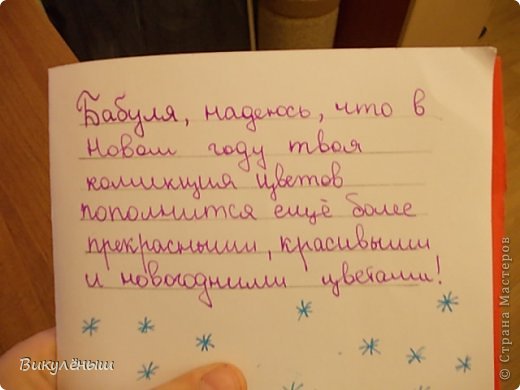 Бабуля, надеюсь, что в
Новом году твоя
коллекция цветов
пополнится ещё более
прекрасными, красивыми
и новогодними цветами!
Викулёныш
© Страна Мастеров